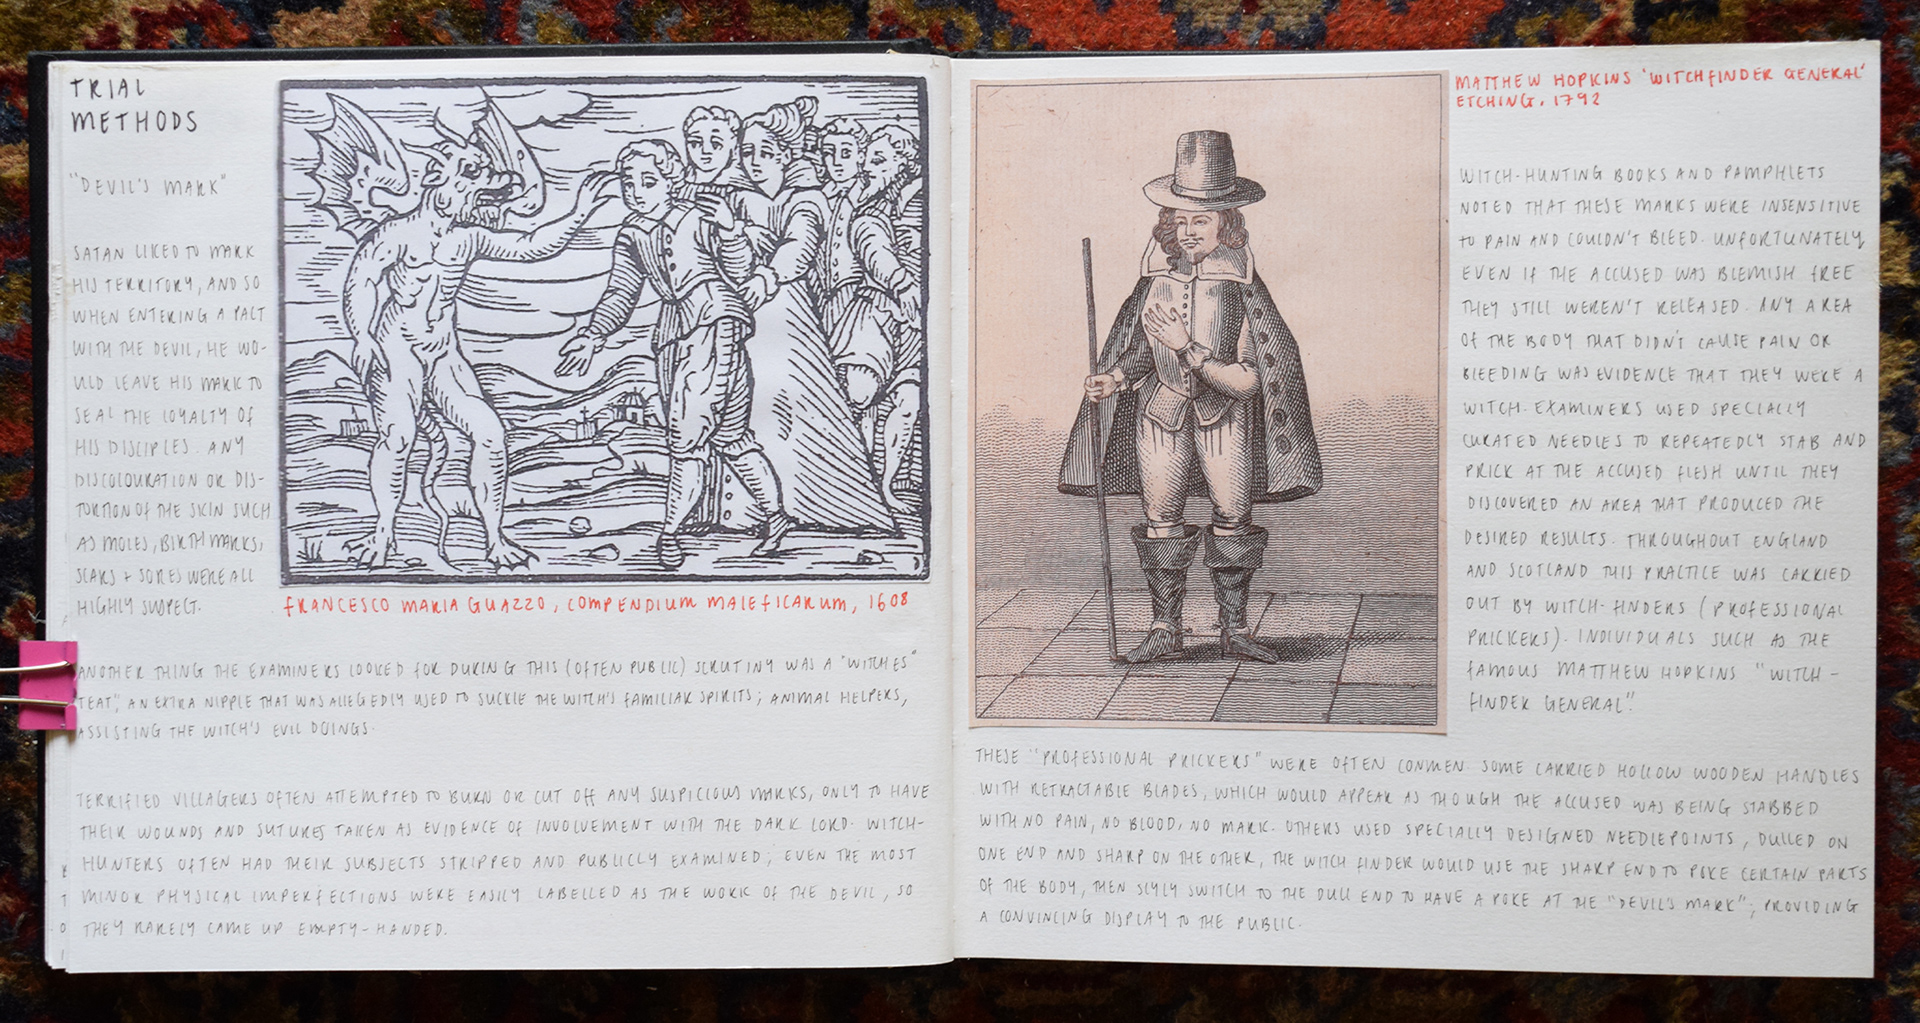 TRIAL
METHODS
"DEVIL'S MARK"
SATAN LIKED TO MARK
HIS TERRITORY, AND SO
WHEN ENTERING A PACT
WITH THE DEVIL, HE WO-
ULD LEAVE HIS MARK TO
SEAL THE LOYALTY OF
HIS DISCIPLES. ANY
DISCOLOURATION OR DIS-
TORTION OF THE SKIN SUCH
AS MOLES, BIRTH MARKS,
SCARS + SORES WERE ALL
HIGHLY SUSPECT.
FRANCESCO MARIA GUAZZO, COMPENDIUM MALEFICARUM, 1608
ANOTHER THING THE EXAMINERS LOOKED FOR DURING THIS (OFTEN PUBLIC) SCRUTINY WAS A "WITCHES"
TEAT", AN EXTRA NIPPLE THAT WAS ALLEGEDLY USED TO SUCKLE THE WITCH'S FAMILIAR SPIRITS; ANIMAL HELPERS,
ASSISTING THE WITCH'S EVIL DOINGS.
TERRIFIED VILLAGERS OFTEN ATTEMPTED TO BURN OR CUT OFF ANY SUSPICIOUS MARKS, ONLY TO HAVE
THEIR WOUNDS AND SUTURES TAKEN AS EVIDENCE OF INVOLVEMENT WITH THE DARK LORD. WITCH-
HUNTERS OFTEN HAD THEIR SUBJECTS STRIPPED AND PUBLICLY EXAMINED; EVEN THE MOST
MINOR PHYSICAL IMPERFECTIONS WERE EASILY LABELLED AS THE WORK OF THE DEVIL, SO
THEY RARELY CAME UP EMPTY-HANDED.
MATTHEW HOPKINS 'WITCHFINDER GENERAL'
ETCHING, 1792
WITCH-HUNTING BOOKS AND PAMPHLETS
NOTED THAT THESE MARKS WERE INSENSITIVE
TO PAIN AND COULDN'T BLEED. UNFORTUNATELY,
EVEN IF THE ACCUSED WAS BLEMISH FREE
THEY STILL WEREN'T RELEASED. ANY AREA
OF THE BODY THAT DIDN'T CAUSE PAIN OR
BLEEDING WAS EVIDENCE THAT THEY WERE A
WITCH. EXAMINERS USED SPECIALLY
CURATED NEEDLES TO REPEATEDLY STAB AND
PRICK AT THE ACCUSED FLESH UNTIL THEY
DISCOVERED AN AREA THAT PRODUCED THE
DESIRED RESULTS. THROUGHOUT ENGLAND
AND SCOTLAND THIS PRACTICE WAS CARRIED
OUT BY WITCH-FINDERS (PROFESSIONAL
PRICKERS). INDIVIDUALS SUCH AS THE
FAMOUS MATTHEW HOPKINS "WITCH-
FINDER GENERAL".
THESE "PROFESSIONAL PRICKERS" WERE OFTEN CONMEN. SOME CARRIED HOLLOW WOODEN HANDLES
WITH RETRACTABLE BLADES, WHICH WOULD APPEAR AS THOUGH THE ACCUSED WAS BEING STABBED
WITH NO PAIN, NO BLOOD, NO MARK. OTHERS USED SPECIALLY DESIGNED NEEDLEPOINTS, DULLED ON
ONE END AND SHARP ON THE OTHER, THE WITCH FINDER WOULD USE THE SHARP END TO POKE CERTAIN PARTS
OF THE BODY, THEN SLYLY SWITCH TO THE DULL END TO HAVE A POKE AT THE "DEVIL'S MARK"; PROVIDING
A CONVINCING DISPLAY TO THE PUBLIC.